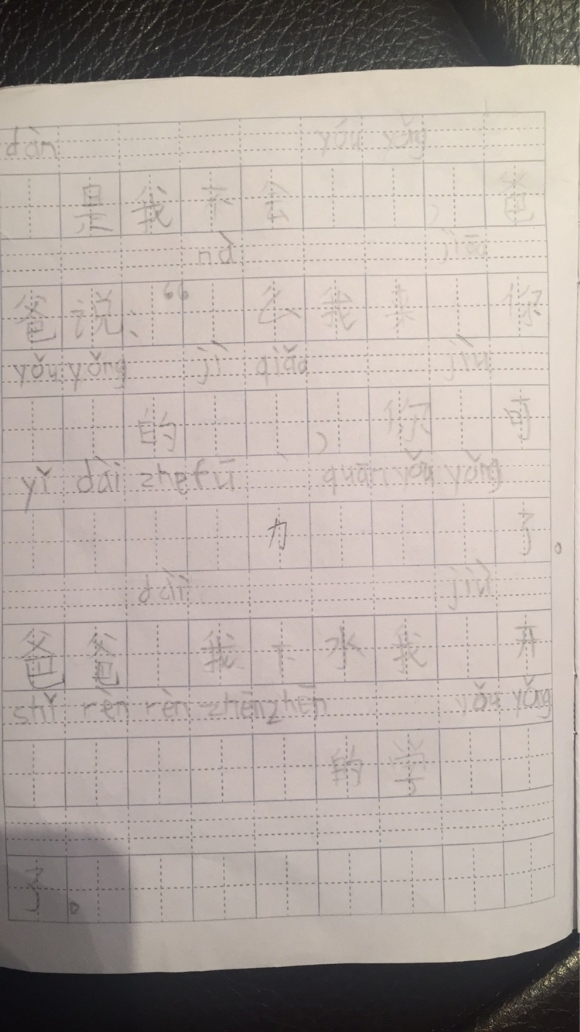 dàn yóu yǒng
是我不会，爸
nà jiāo
爸说:“么我来你
yǒu yǒng jì qiǎo jiù
的，你可
yǐ dài zhe fū quān yǒu yǒng
力了。
dài jiù
爸爸我下水我开
shǐ rèn rèn zhēn zhēn yǒu yǒng
的学
了。